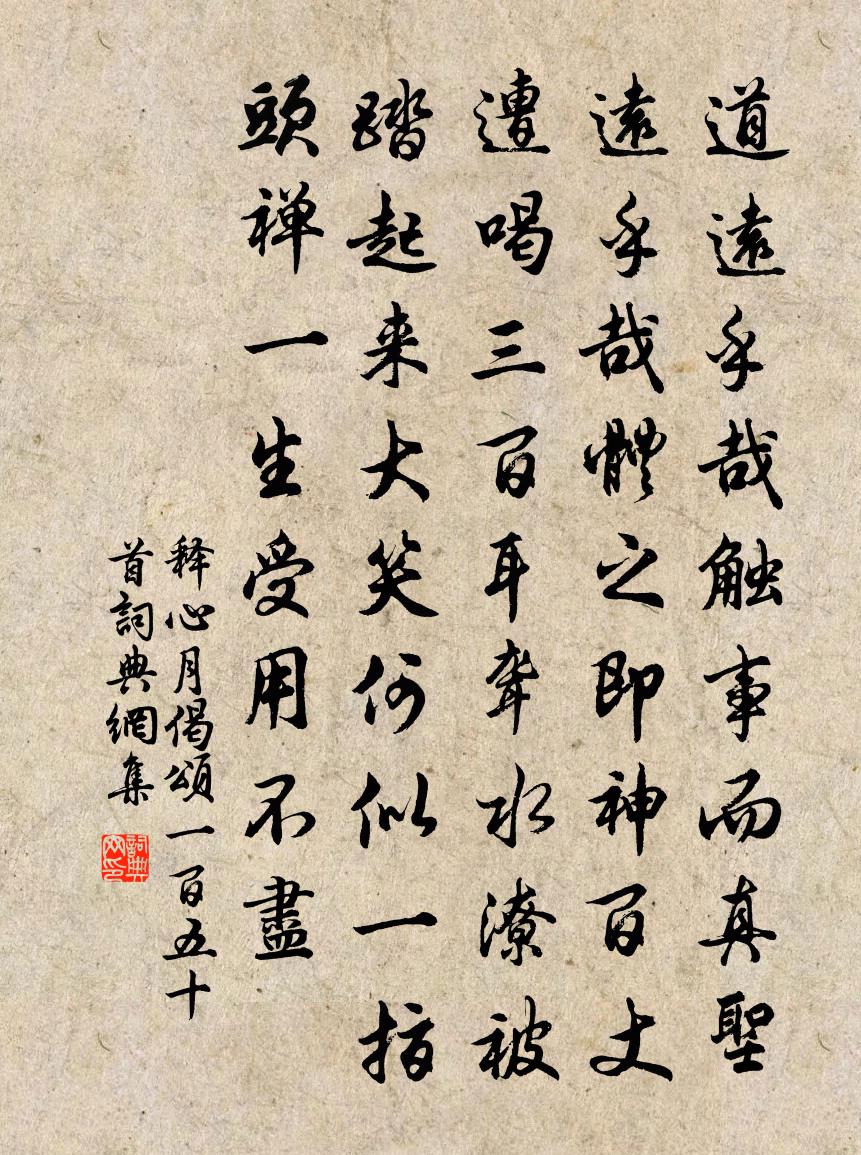 道遠乎哉触事而真聖
遠乎哉體之即神百丈
遭喝三百耳聾水潦被
踏起来大笑何似一指
頭禅一生受用不盡
释心月偈頌一百五十
首詞典網集
詞典
网印